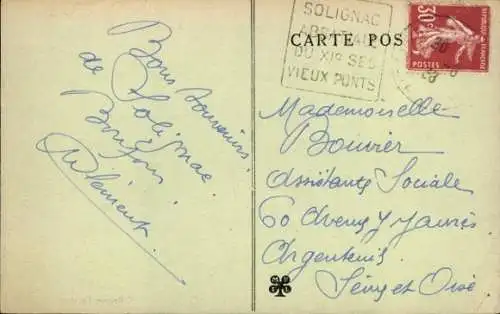 SOLIGNAC
ABBATIALE
DU XIº SES
VIEUX PONTS
CARTE POS
30c
POSTES
Bons souvenirs
de Solignac.
Bonjour.
Clément
Mademoiselle
Bouvier
Assistante Sociale
60 Avenue J Jaurès
Argenteuil
Seine et Oise